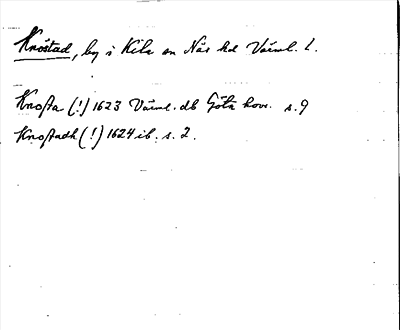 Knöstad, by i Kila sn Näs hd Värml. l.
Knosta (!) 1623 Värml. db Göta hovr. s. 9
Knostadh (!) 1624 ib. s. 2.